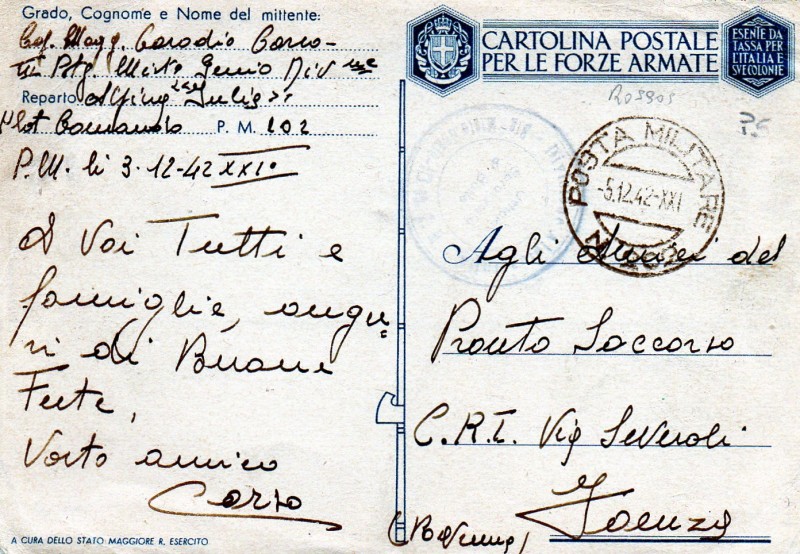 Grado, Cognome e Nome del mittente:
Magg.
Genio Div
Reparto Alpina "Julia"
Plot Comando P. M. 202
P.M. li 3-12-42 XXI°
A Voi Tutti e
famiglie, augu=
ri di Buone
Feste,
Vostro amico
A CURA DELLO STATO MAGGIORE R. ESERCITO
CARTOLINA POSTALE
PER LE FORZE ARMATE
ESENTE DA
TASSA PER
L'ITALIA E
SVE COLONIE
POSTA MILITARE
-5.12.42-XXI
Agli Amici del
Pronto Soccorso
C.R.I. Via Severoli
Faenza
(Ravenna)